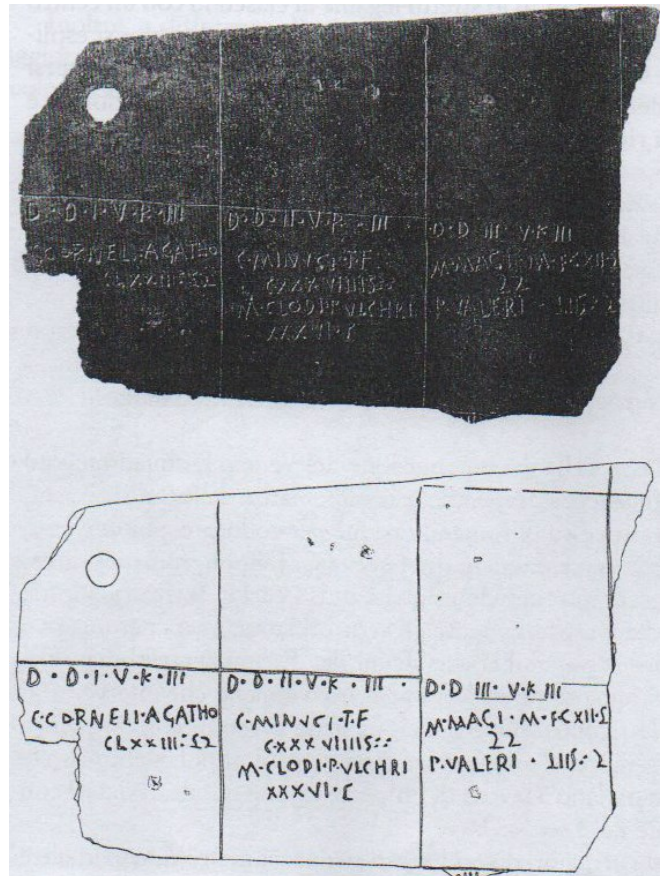 D · D · I · V · K · III
C · CORNELI · AGATHO
CLXXIII ·
D · D · II · V · K · III ·
C · MINUCI · T · F
CXXXVIIIIS
M · CLODI · PVLCHRI
XXXVI ·
D · D III · V · K III
M · MAGI · M · F · CXII ·
22
P · VALERI ·
D · D · I · V · K · III
C · CORNELI · AGATHO
CLXXIII ·
D · D · II · V · K · III ·
C · MINVCI · T · F
CXXXVIIIIS
M · CLODI · PVLCHRI
XXXVI ·
D · D III · V · K III
M · MAGI · M · F · CXII ·
22
P · VALERI ·